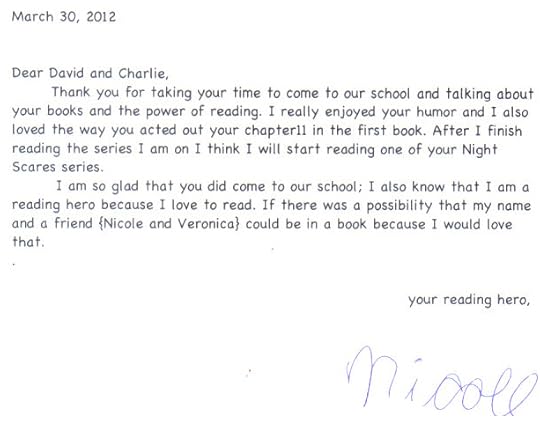 March 30, 2012
Dear David and Charlie,
Thank you for taking your time to come to our school and talking about
your books and the power of reading. I really enjoyed your humor and I also
loved the way you acted out your chapter11 in the first book. After I finish
reading the series I am on I think I will start reading one of your Night
Scares series.
I am so glad that you did come to our school; I also know that I am a
reading hero because I love to read. If there was a possibility that my name
and a friend {Nicole and Veronica} could be in a book because I would love
that.
.
your reading hero,
Nicole